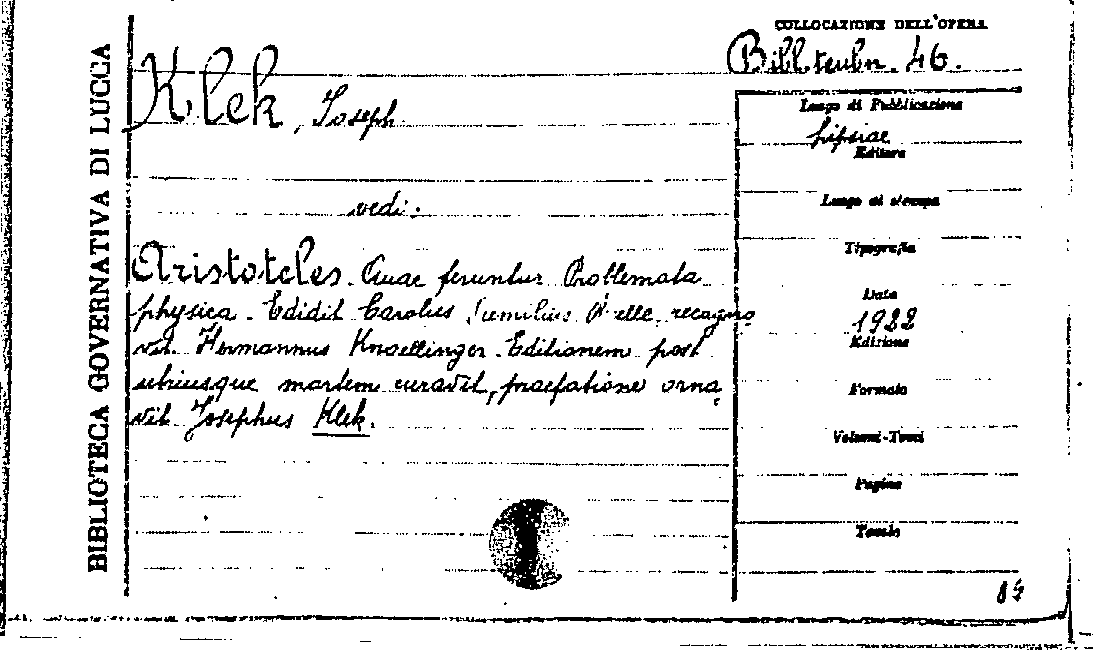 BIBLIOTECA GOVERNATIVA DI LUCCA
COLLOCAZIONE DELL'OPERA
Bibl. teubn. 46.
Klek, Joseph
vedi:
Aristoteles. Quae feruntur Problemata
physica. Edidit Carolus Aemilius Ruelle, recogno
vit Hermannus Knoellinger. Editionem post
utriusque mortem curavit, praefatione orna
vit Josephus Klek.
Luogo di Pubblicazione
Lipsiae
Editore
Luogo di stampa
Tipografia
Data
1922
Edizione
Formato
Volumi-Tomi
Pagine
Tavole